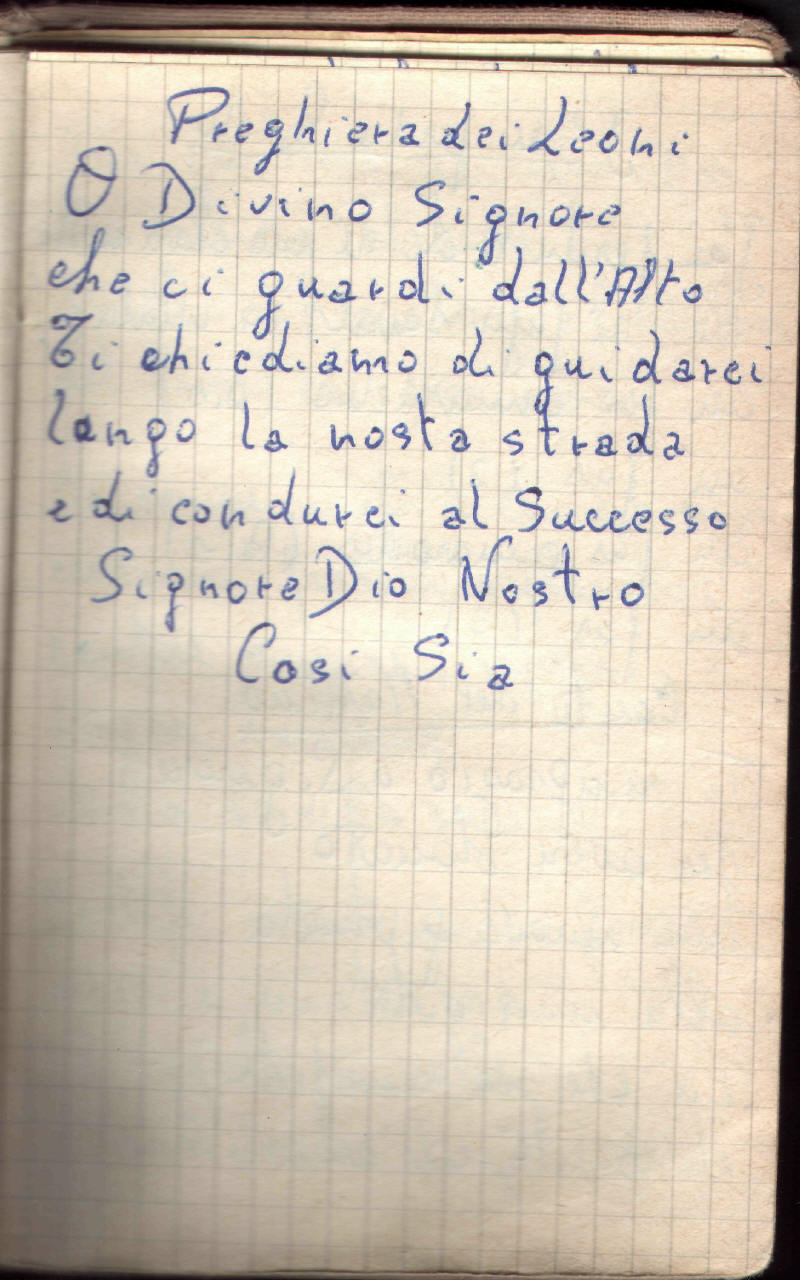 Preghiera dei Leoni
O Divino Signore
che ci guardi dall'Alto
Ti chiediamo di guidarci
lungo la nosta strada
e di condurci al Successo
Signore Dio Nostro
Cosi Sia